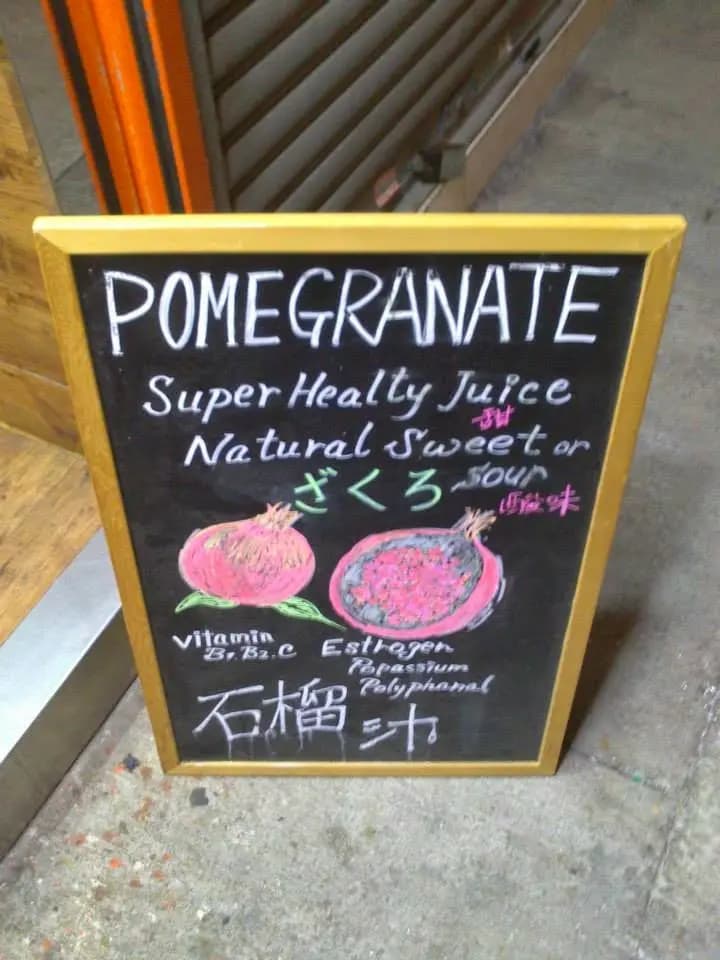 POMEGRANATE
Super Healty Juice
甜
Natural Sweet or
sour
ざくろ
酸味
Vitamin
B1, B2. C
Estrogen
Popassium
Polyphanal
石榴汁